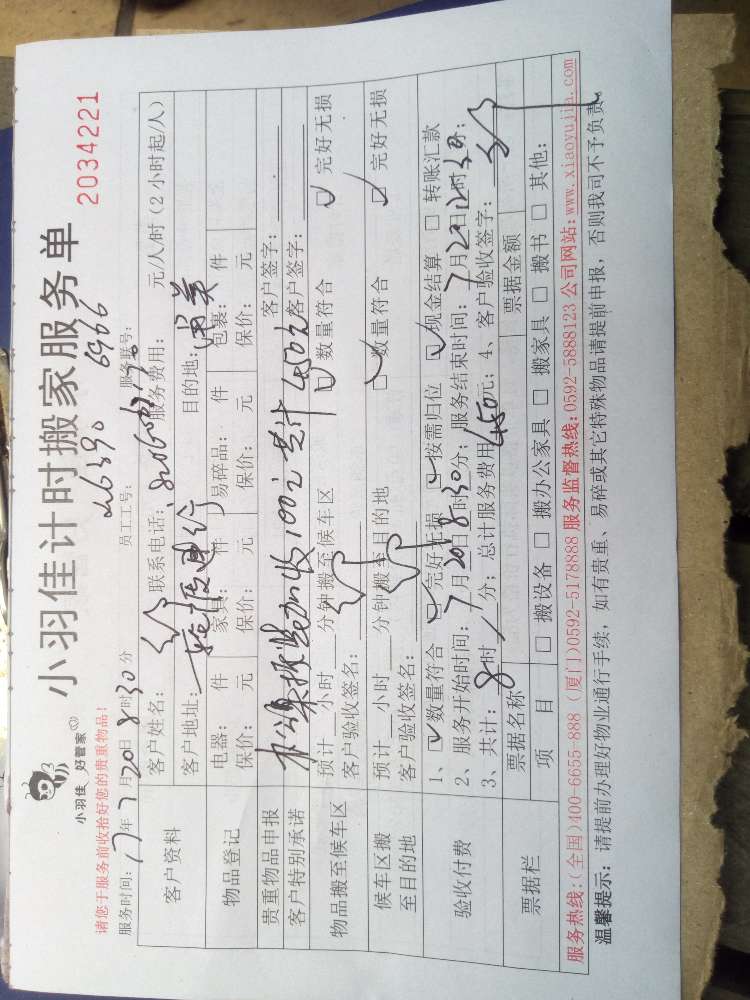 小羽佳 好管家
小羽佳计时搬家服务单
请您于服务前收拾好您的贵重物品！
2034221
6390 6966
服务时间：17年7月20日8时30分 员工工号： 服务联号：
客户资料
客户姓名： 联系电话： 服务费用： 元/人/时（2小时起/人）
客户地址： 目的地：
物品登记
电器： 件 家具： 件 易碎品： 件 包裹： 件
保价： 元 保价： 元 保价： 元 保价： 元
贵重物品申报 客户签字：
客户特别承诺 加收100元 总计450元 客户签字：
物品搬至候车区
预计 小时 分钟搬至候车区 ☑ 数量符合 ☑ 完好无损
客户验收签名：
候车区搬
至目的地
预计 小时 分钟搬至目的地 ☑ 数量符合 ☑ 完好无损
客户验收签名：
验收付费
1、☑ 数量符合 ☑ 完好无损 ☑ 按需归位 ☑ 现金结算 □ 转账汇款
2、服务开始时间：7月20日8时30分；服务结束时间：7月20日12时 分；
3、共计：8时 分；总计服务费用450元；4、客户验收签字：
票据栏
票据名称 票据金额
项 目 □ 搬设备 □ 搬办公家具 □ 搬家具 □ 搬书 □ 其他：
服务热线：(全国)400-6655-888 (厦门)0592-5178888 服务监督热线：0592-5888123 公司网站：www.xiaoyujia.com
温馨提示：请提前办理好物业通行手续，如有贵重、易碎或其它特殊物品请提前申报，否则我司不予负责。